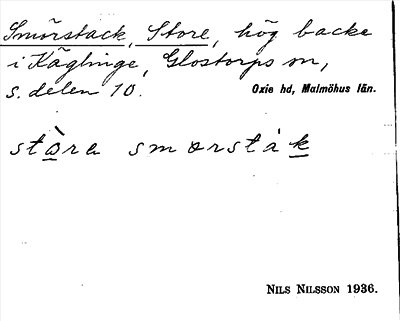 Smörstack, Store, hög backe
i Käglinge, Glostorps sn,
s. delen 10. Oxie hd, Malmöhus län.
stòra smorsták
NILS NILSSON 1936.